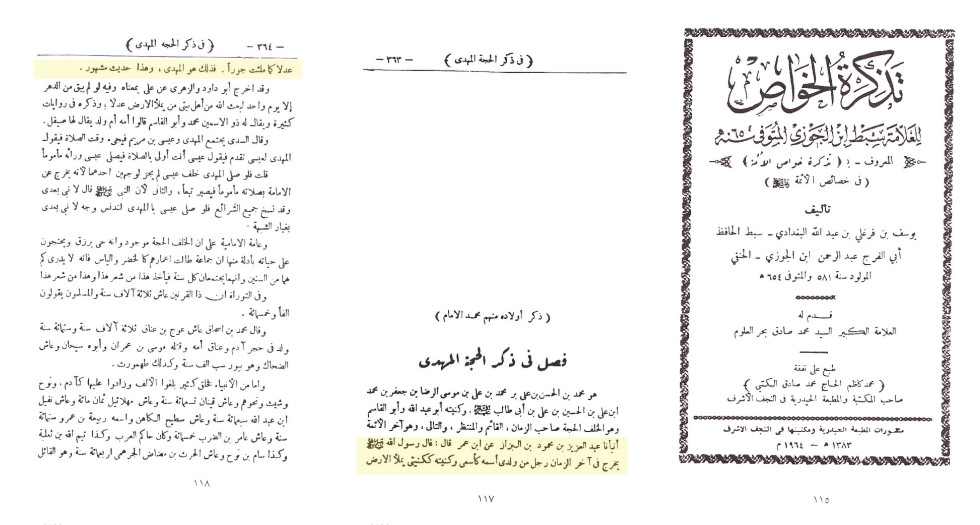 تذكرة الخواص
للعلامة سبط ابن الجوزي المتوفى سنة ٦٥٤ هـ
المعروف - بـ ( تذكرة خواص الأمة )
( في خصائص الأئمة ﷺ )
تأليف
يوسف بن فرغلي بن عبد الله البغدادي - سبط الحافظ
أبي الفرج عبد الرحمن ابن الجوزي - الحنفي
المولود سنة ٥٨١ والمتوفى ٦٥٤ هـ
قدم له
العلامة الكبير السيد محمد صادق بحر العلوم
طبع على نفقة
( محمد كاظم الحاج محمد صادق الكتبي )
صاحب المكتبة والمطبعة الحيدرية في النجف الأشرف
منشورات المطبعة الحيدرية ومكتبتها في النجف الأشرف
١٣٨٣ هـ - ١٩٦٤ م
١١٥
( فى ذكر الحجة المهدى ) - ٣٦٣ -
( ذكر أولاده منهم محمد الامام )
فصل فى ذكر الحجة المهدى
هو محمد بن الحسن بن على بن محمد بن على بن موسى الرضا بن جعفر بن محمد
ابن على بن الحسين بن على بن أبى طالب ﷺ . وكنيته أبو عبد الله وأبو القاسم
وهو الخلف الحجة صاحب الزمان ، القائم والمنتظر ، والتالى ، وهو آخر الائمة
أنبأنا عبد العزيز بن محمود بن البزاز عن ابن عمر قال : قال رسول الله ﷺ
يخرج فى آخر الزمان رجل من ولدى أسمه كأسمى وكنيته ككنيتى يملأ الارض
١١٧
- ٣٦٤ - ( فى ذكر الحجه المهدى )
عدلا كما ملئت جوراً . فذلك هو المهدى ، وهذا حديث مشهور .
وقد اخرج أبو داود والزهرى عن على بمعناه وفيه لو لم يبق من الدهر
إلا يوم واحد لبعث الله من أهل بيتى من يملأ الارض عدلا ؛ وذكره فى روايات
كثيرة ويقال له ذو الاسمين محمد وأبو القاسم قالوا أمه أم ولد يقال لها صيقل .
وقال السدى يجتمع المهدى وعيسى بن مريم فيجىء وقت الصلاة فيقول
المهدى لعيسى تقدم فيقول عيسى أنت أولى بالصلاة فيصلى عيسى ورائه مأموماً
قلت فلو صلى المهدى خلف عيسى لم يجز لوجهين احدهما لانه يخرج عن
الامامة بصلاته مأموماً فيصير تبعاً ، والثانى لان النبى ﷺ قال لا نبى بعدى
وقد نسخ جميع الشرائع فلو صلى عيسى بالمهدى لتدنس وجه لا نبى بعدى
بغبار الشبهة .
وعامة الامامية على ان الخلف الحجة موجود وانه حى يرزق ويحتجون
على حياته بأدلة منها ان جماعة طالت اعمارهم كالخضر والياس فانه لا يدرى كم
لهما من السنين وانهما يجتمعان كل سنة فيأخذ هذا من شعر هذا وهذا من شعر هذا
وفى التوراة ان ذا القرنين عاش ثلاثة آلاف سنة والمسلمون يقولون
الفا وخمسمائة .
وقال محمد بن اسحاق عاش عوج بن عناق ثلاثة آلاف سنة وستمائة سنة
ولد فى حجر آدم وعناق أمه وقتله موسى بن عمران وأبوه سيحان وعاش
الضحاك وهو بيورسب الف سنة وكذلك طهمورث .
واما من الانبياء فخلق كثير بلغوا الالف وزادوا عليها كآدم ، ونوح
وشيث ونحوهم وعاش قينان تسعمائة سنة وعاش مهلائيل ثمان مائة وعاش نفيل
ابن عبد الله سبعمائة سنة وعاش سطيح الكاهن واسمه ربيعة بن عمرو ستمائة
سنة وعاش عامر بن الضرب خمسمائة وكان حاكم العرب وكذا تيم الله بن ثعلبة
وكذا سام بن نوح وعاش الحرث بن مضاض الجرهمى اربعمائة سنة وهو القائل
١١٨